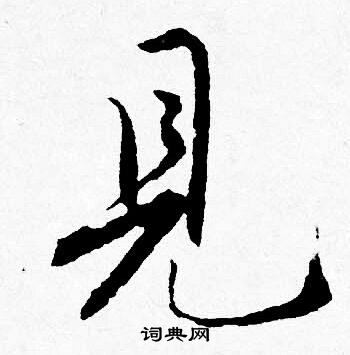 見
词典网